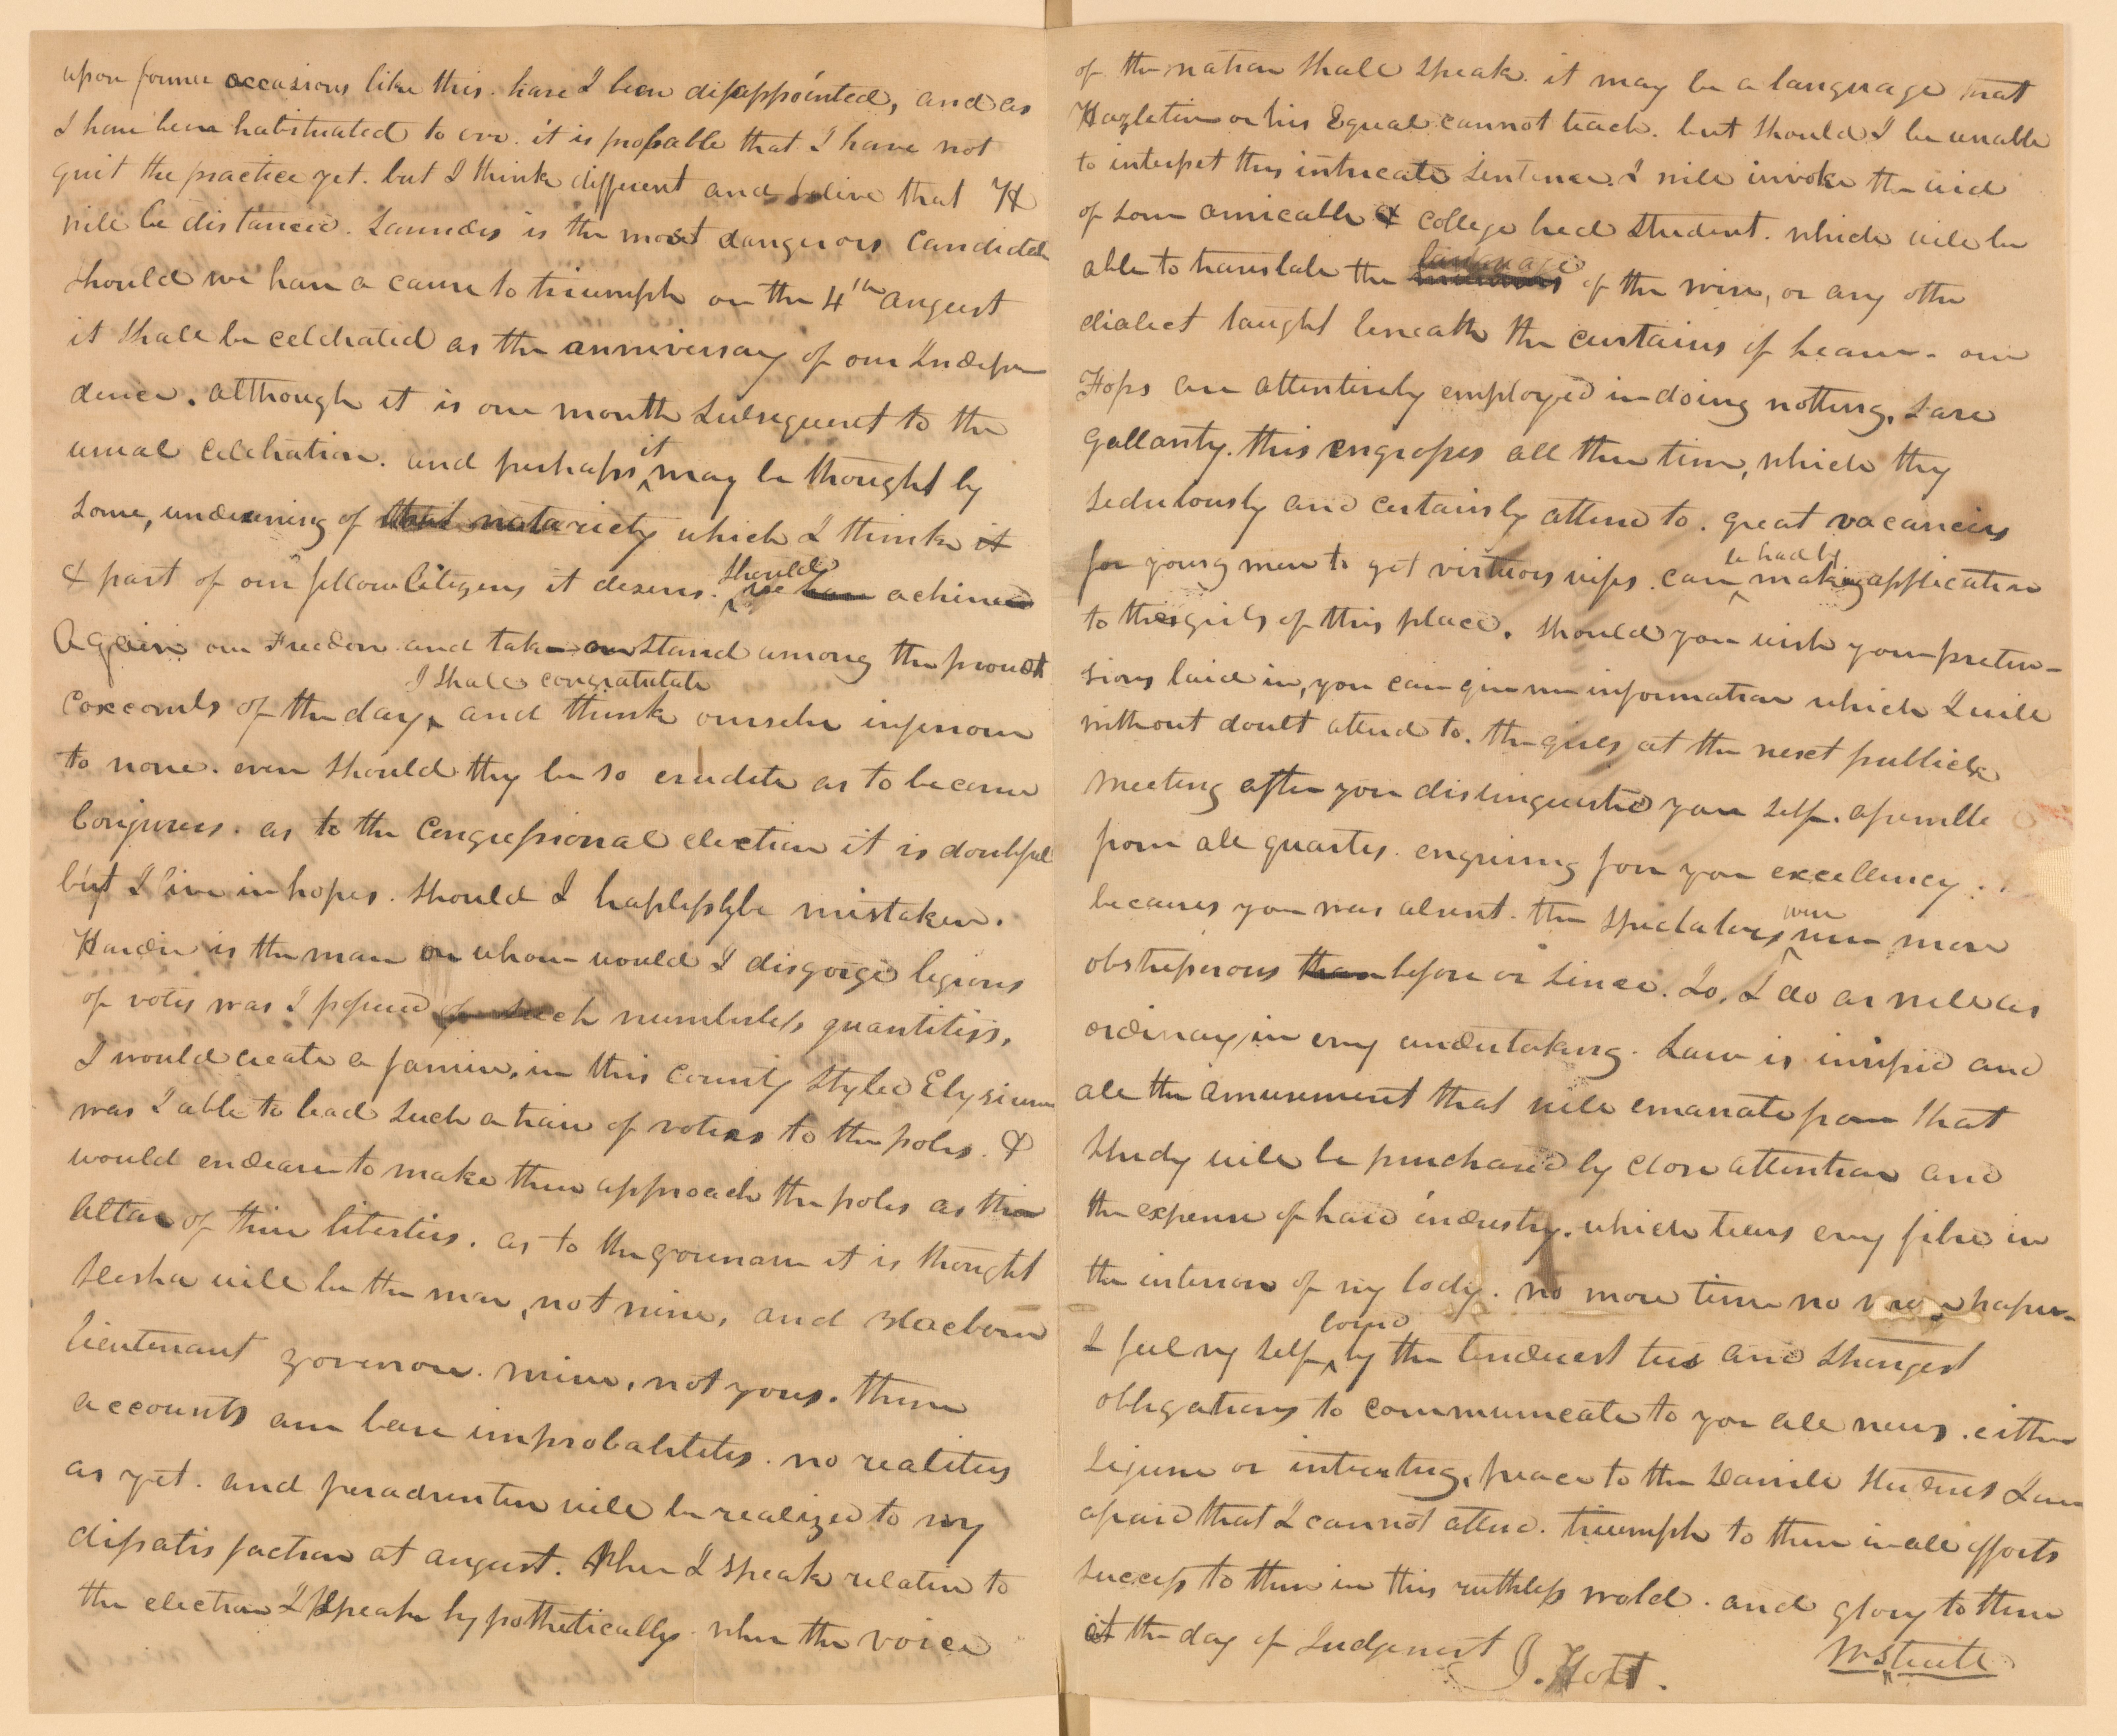 upon former occasions like this. have I been disappointed, and as
I have been habituated to err. it is probable that I have not
quit the practice yet. but I think different and belive that H
will be distanced. is the most dangerous Candidate
should we have a cause to triumph on the 4th august
it shall be celebrated as the anniversary of our Indepen
dence. although it is one month subsequent to the
usual celebration. and perhaps it may be thought by
some, undeserving of that notariety which I think it
& part of our fellow Citizens it deserves. should we have achieved
Again our Freedom and take our stand among the proudest
Coxcombs of the day, I shall congratulate and think ourselves inferiour
to none. even should they be so erudite as to become
Conjurers. as to the Congressional election it is doubtful
but I live in hopes. should I haplessly be mistaken.
Hardin is the man on whom would I disgorge legions
of votes was I possessed of such numberless quantities,
I would create a famine, in this county styled Elysium
was I able to lead such a train of voters to the poles. &
would endeavor to make them approach the poles as the
Altar of their liberties. as to the governour it is thought
Desha will be the man, not mine, and Blackburn
lieutenant governour. mine, not yours. these
accounts are bare improbabilitis. no realities
as yet. and peradventure will be realized to my
dissatisfaction at august. When I speak relative to
the election I speak hypothetically. when the voice
of the nation shall speak. it may be a language that
Hazletine or his Equal cannot teach. but should I be unable
to interpet this intricate sentence. I will invoke the aid
of some amicable & college bred student. which will be
able to translate the language of the wise, or any other
dialect taught beneath the curtains of heaven. our
Fops are attentively employed in doing nothing, save
gallanty. this engrosses all their time, which they
sedulously and certainly attend to. great vacancies
for young men to get virtuous wifes. can be had by making application
to the girls of this place. should you wish your preten-
sions laid in, you can give me information which I will
without doubt attend to. the girls at the next publick
meeting after you distinguished your self. assemble
from all quarters. enquiring for your excellency.
because you was absent. the spectators were more
obstreperous than before or since. So, I do as well as
ordinary, in every undertaking. Law is insipid and
all the amusement that will emanate from that
study will be purchased by close attention and
the expense of hard industry. which tears every fibre in
the interior of my body. no more time no more paper.
I feel my self bound by the tenderest ties and strongest
obligations to communicate to you all news. either
Jejune or intersting. peace to the Danvile students I am
afraid that I cannot attend. triumph to them in all efforts
success to them in this ruthless world. and glory to them
at the day of Judgement J. Holt.